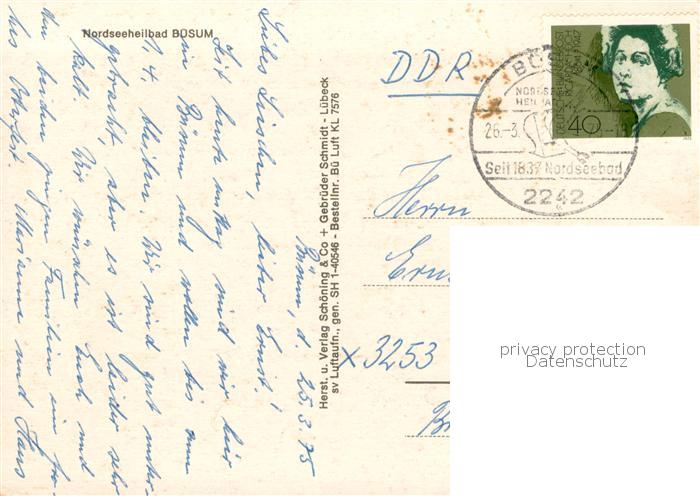 Nordseeheilbad BÜSUM
Büsum, d. 25.3.75
Liebes Lieschen, lieber Ernst!
Seit heute mittag sind wir hier
in Büsum und wollen bis zum
1. 4. bleiben. Wir sind gut unter-
gebracht, aber es ist leider sehr
kalt. Wir wünschen Euch und
den beiden jungen Familien ein fro-
hes Osterfest. Marianne und Hans
Herst. u. Verlag Schöning & Co + Gebrüder Schmidt - Lübeck
sv Luftaufn., gen. SH 1-40546 - Bestellnr. Bü Luft KL 7576
DDR
Herrn
X 3253
DEUTSCHE BUNDESPOST
40
26.-3.
Seit 1837 Nordseebad
2242
privacy protection
Datenschutz